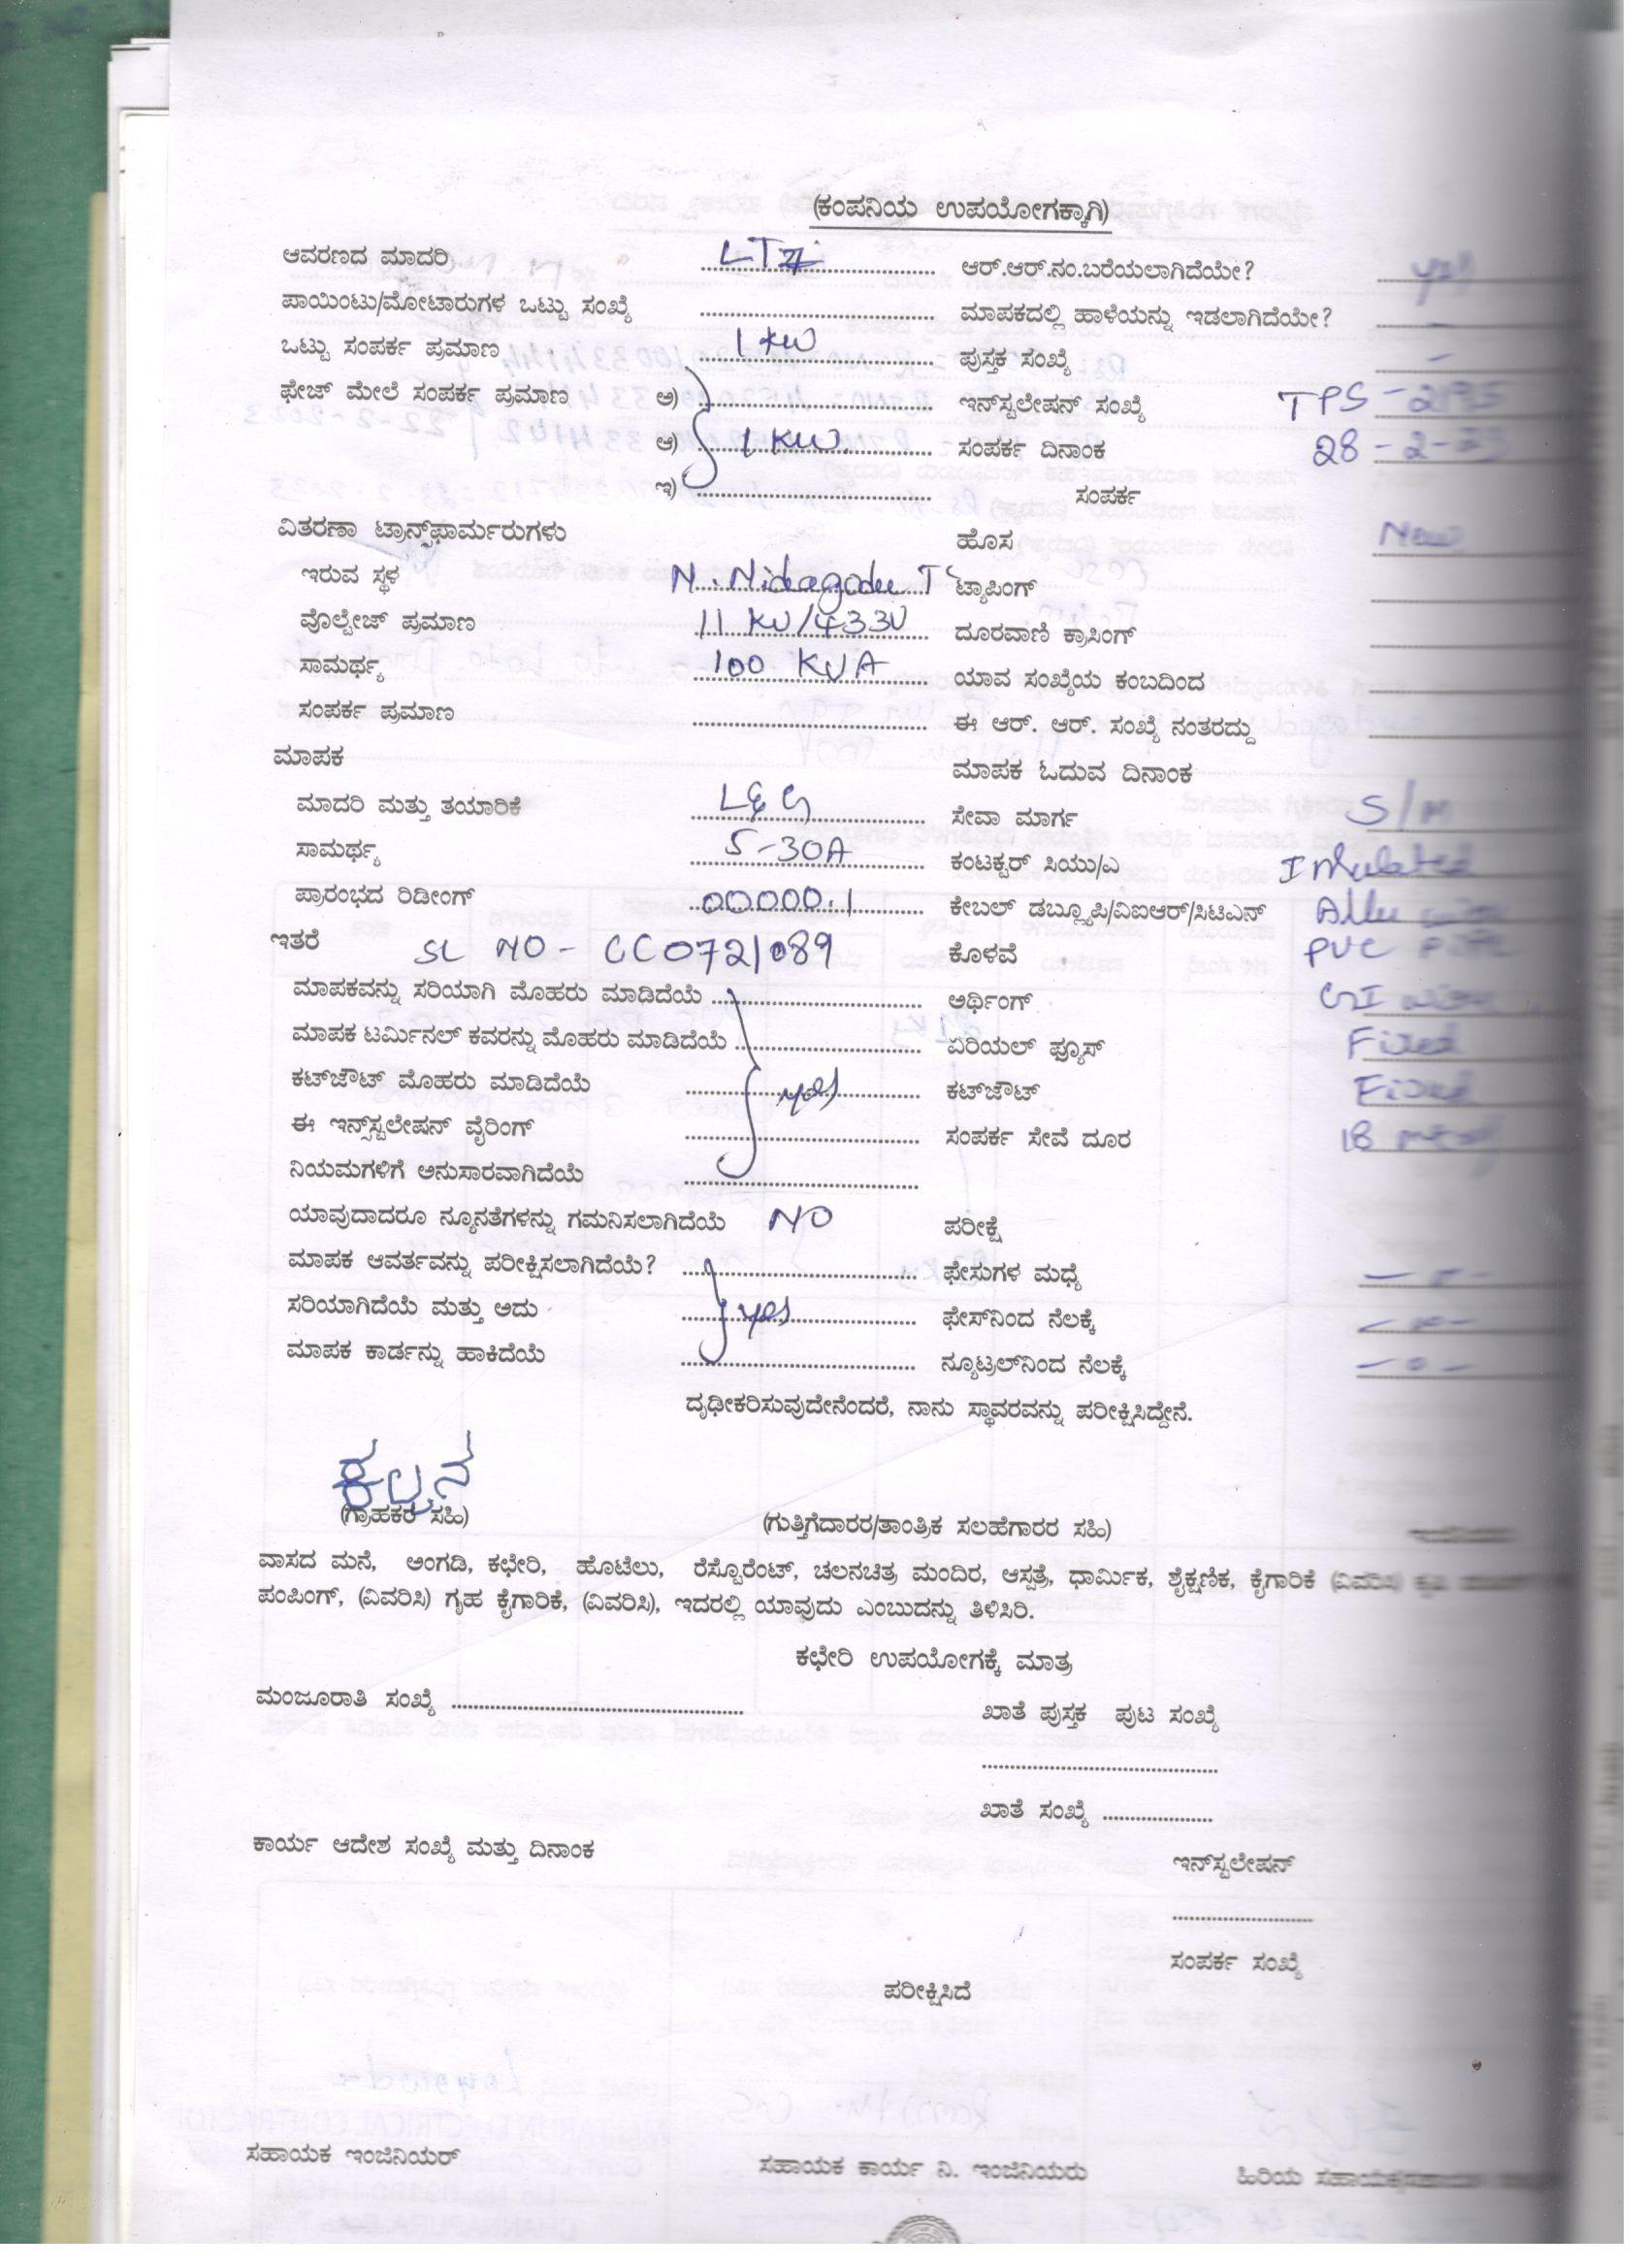 (ಕಂಪನಿಯ ಉಪಯೋಗಕ್ಕಾಗಿ)
ಆವರಣದ ಮಾದರಿ LT ಆರ್.ಆರ್.ನಂ.ಬರೆಯಲಾಗಿದೆಯೇ? yes
ಪಾಯಿಂಟು/ಮೋಟಾರುಗಳ ಒಟ್ಟು ಸಂಖ್ಯೆ ಮಾಪಕದಲ್ಲಿ ಹಾಳೆಯನ್ನು ಇಡಲಾಗಿದೆಯೇ? -
ಒಟ್ಟು ಸಂಪರ್ಕ ಪ್ರಮಾಣ 1 KW ಪುಸ್ತಕ ಸಂಖ್ಯೆ -
ಫೇಜ್ ಮೇಲೆ ಸಂಪರ್ಕ ಪ್ರಮಾಣ ಅ) ಇನ್‌ಸ್ಟಲೇಷನ್ ಸಂಖ್ಯೆ TPS - 2195
ಆ) 1 KW. ಸಂಪರ್ಕ ದಿನಾಂಕ 28-2-23
ಇ) ಸಂಪರ್ಕ
ವಿತರಣಾ ಟ್ರಾನ್ಸ್‌ಫಾರ್ಮರುಗಳು ಹೊಸ New
ಇರುವ ಸ್ಥಳ N. Nidagodu T ಟ್ಯಾಪಿಂಗ್
ವೊಲ್ಟೇಜ್ ಪ್ರಮಾಣ 11 KV/433V ದೂರವಾಣಿ ಕ್ರಾಸಿಂಗ್
ಸಾಮರ್ಥ್ಯ 100 KVA ಯಾವ ಸಂಖ್ಯೆಯ ಕಂಬದಿಂದ
ಸಂಪರ್ಕ ಪ್ರಮಾಣ ಈ ಆರ್. ಆರ್. ಸಂಖ್ಯೆ ನಂತರದ್ದು
ಮಾಪಕ ಮಾಪಕ ಓದುವ ದಿನಾಂಕ
ಮಾದರಿ ಮತ್ತು ತಯಾರಿಕೆ L&G ಸೇವಾ ಮಾರ್ಗ S/M
ಸಾಮರ್ಥ್ಯ 5-30A ಕಂಟಕ್ಟರ್ ಸಿಯು/ಎ Insulated
ಪ್ರಾರಂಭದ ರಿಡೀಂಗ್ 00000.1 ಕೇಬಲ್ ಡಬ್ಲ್ಯೂಪಿ/ವಿಐಆರ್/ಸಿಟಿಎನ್ Allu
ಇತರೆ SL NO - CC0721089 ಕೊಳವೆ PVC Pipe
ಮಾಪಕವನ್ನು ಸರಿಯಾಗಿ ಮೊಹರು ಮಾಡಿದೆಯೆ ಅರ್ಥಿಂಗ್ GI wire
ಮಾಪಕ ಟರ್ಮಿನಲ್ ಕವರನ್ನು ಮೊಹರು ಮಾಡಿದೆಯೆ ಏರಿಯಲ್ ಫ್ಯೂಸ್ Fixed
ಕಟ್‌ಔಟ್ ಮೊಹರು ಮಾಡಿದೆಯೆ yes ಕಟ್‌ಔಟ್ Fixed
ಈ ಇನ್ಸ್‌ಸ್ಟಲೇಷನ್ ವೈರಿಂಗ್ ಸಂಪರ್ಕ ಸೇವೆ ದೂರ 18
ನಿಯಮಗಳಿಗೆ ಅನುಸಾರವಾಗಿದೆಯೆ
ಯಾವುದಾದರೂ ನ್ಯೂನತೆಗಳನ್ನು ಗಮನಿಸಲಾಗಿದೆಯೆ NO ಪರೀಕ್ಷೆ
ಮಾಪಕ ಆವರ್ತವನ್ನು ಪರೀಕ್ಷಿಸಲಾಗಿದೆಯೆ? ಫೇಸುಗಳ ಮಧ್ಯೆ
ಸರಿಯಾಗಿದೆಯೆ ಮತ್ತು ಅದು yes ಫೇಸ್‌ನಿಂದ ನೆಲಕ್ಕೆ
ಮಾಪಕ ಕಾರ್ಡನ್ನು ಹಾಕಿದೆಯೆ ನ್ಯೂಟ್ರಲ್‌ನಿಂದ ನೆಲಕ್ಕೆ
ದೃಢೀಕರಿಸುವುದೇನೆಂದರೆ, ನಾನು ಸ್ಥಾವರವನ್ನು ಪರೀಕ್ಷಿಸಿದ್ದೇನೆ.
ಕಲ್ಪನ
(ಗ್ರಾಹಕರ ಸಹಿ) (ಗುತ್ತಿಗೆದಾರರ/ತಾಂತ್ರಿಕ ಸಲಹೆಗಾರರ ಸಹಿ)
ವಾಸದ ಮನೆ, ಅಂಗಡಿ, ಕಛೇರಿ, ಹೊಟೆಲು, ರೆಸ್ಟೊರೆಂಟ್, ಚಲನಚಿತ್ರ ಮಂದಿರ, ಆಸ್ಪತ್ರೆ, ಧಾರ್ಮಿಕ, ಶೈಕ್ಷಣಿಕ, ಕೈಗಾರಿಕೆ (ವಿವರಿಸಿ)
ಪಂಪಿಂಗ್, (ವಿವರಿಸಿ) ಗೃಹ ಕೈಗಾರಿಕೆ, (ವಿವರಿಸಿ), ಇದರಲ್ಲಿ ಯಾವುದು ಎಂಬುದನ್ನು ತಿಳಿಸಿರಿ.
ಕಛೇರಿ ಉಪಯೋಗಕ್ಕೆ ಮಾತ್ರ
ಮಂಜೂರಾತಿ ಸಂಖ್ಯೆ ಖಾತೆ ಪುಸ್ತಕ ಪುಟ ಸಂಖ್ಯೆ
ಖಾತೆ ಸಂಖ್ಯೆ
ಕಾರ್ಯ ಆದೇಶ ಸಂಖ್ಯೆ ಮತ್ತು ದಿನಾಂಕ ಇನ್‌ಸ್ಟಲೇಷನ್
ಸಂಪರ್ಕ ಸಂಖ್ಯೆ
ಪರೀಕ್ಷಿಸಿದೆ
ಸಹಾಯಕ ಇಂಜಿನಿಯರ್ ಸಹಾಯಕ ಕಾರ್ಯ ನಿ. ಇಂಜಿನಿಯರು ಹಿರಿಯ